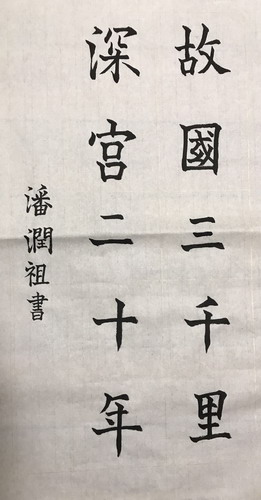 故國三千里
深宫二十年
潘潤祖書